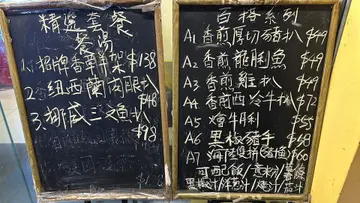 精選套餐
餐湯
1. 招牌香草羊架 $138
2. 紐西蘭肉眼扒 $148
3. 挪式三文魚扒 $98
百搭系列
A1 香煎厚切豬扒 $49
A2 香煎龍脷魚 $49
A3 香煎雞扒 $49
A4 香煎西冷牛扒 $72
A5 燴牛脷 $55
A6 黑椒豬手 $58
A7 海陸雙拼 $60
可配飯/意粉/薯條
黑椒汁/洋葱汁/燒汁/茄汁